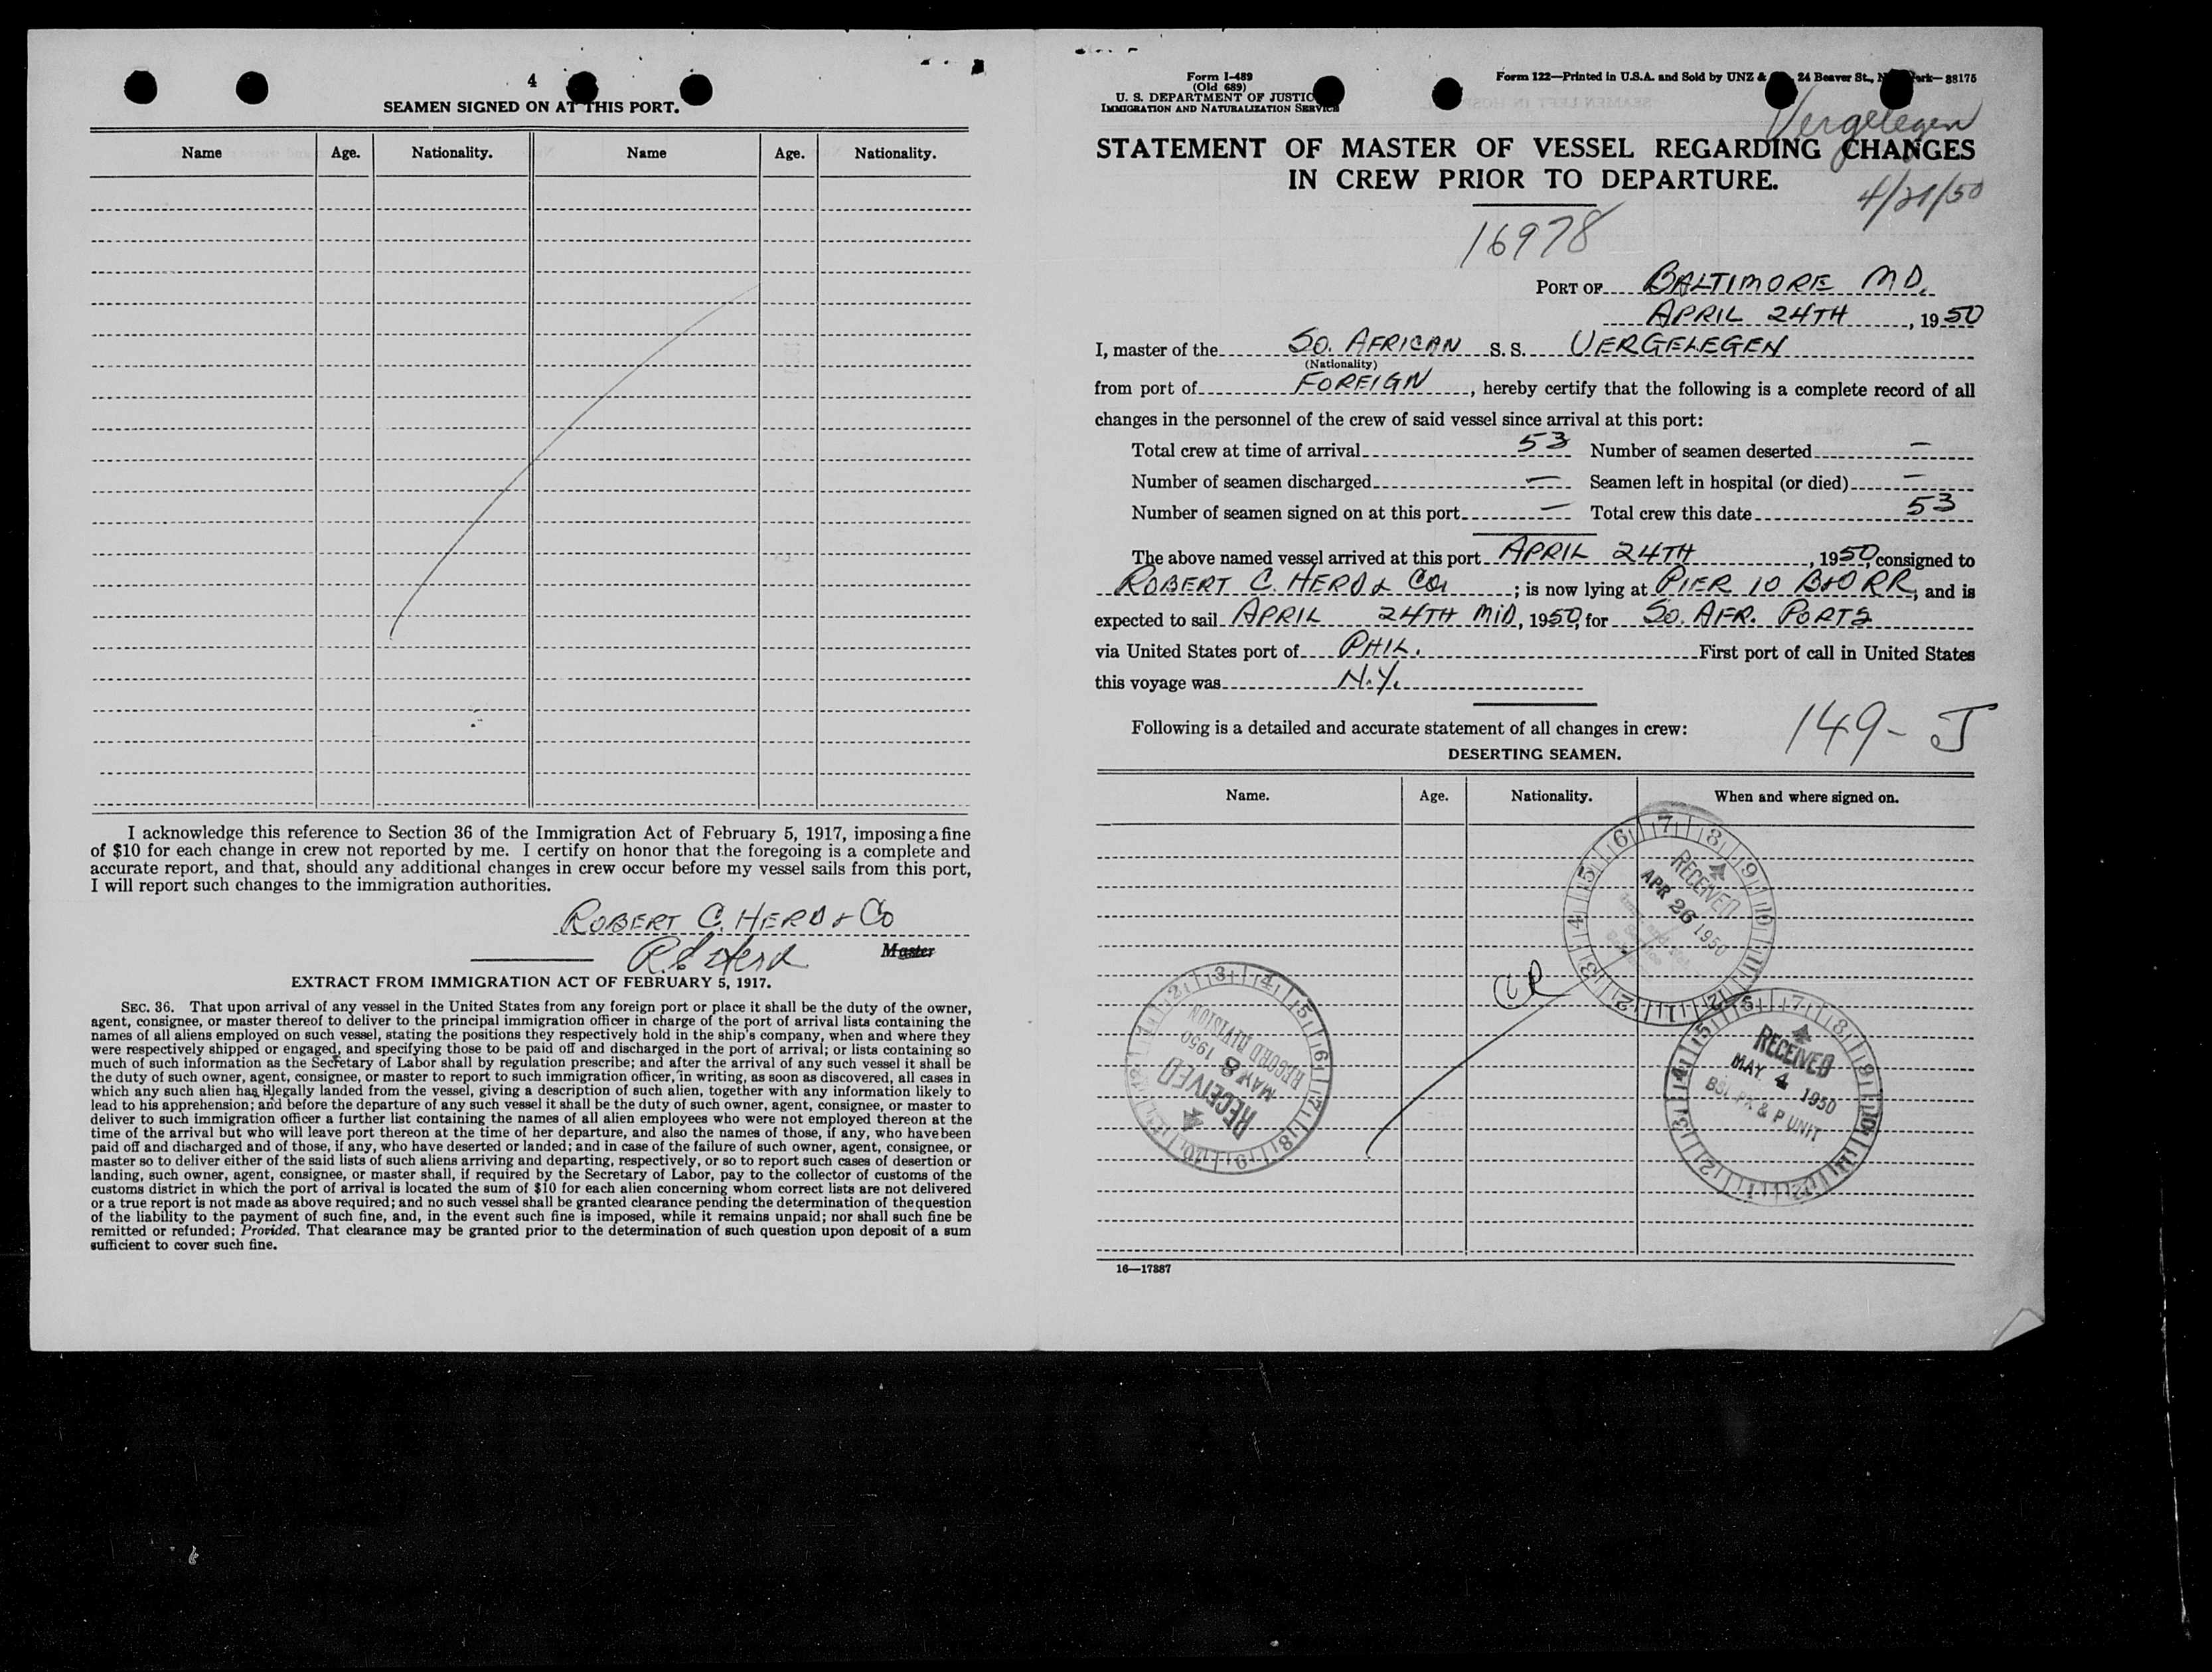 4
SEAMEN SIGNED ON AT THIS PORT.
Name Age. Nationality. Name Age. Nationality.
I acknowledge this reference to Section 36 of the Immigration Act of February 5, 1917, imposing a fine
of $10 for each change in crew not reported by me. I certify on honor that the foregoing is a complete and
accurate report, and that, should any additional changes in crew occur before my vessel sails from this port,
I will report such changes to the immigration authorities.
ROBERT C. HERD & CO
R C Herd Master
EXTRACT FROM IMMIGRATION ACT OF FEBRUARY 5, 1917.
SEC. 36. That upon arrival of any vessel in the United States from any foreign port or place it shall be the duty of the owner,
agent, consignee, or master thereof to deliver to the principal immigration officer in charge of the port of arrival lists containing the
names of all aliens employed on such vessel, stating the positions they respectively hold in the ship's company, when and where they
were respectively shipped or engaged, and specifying those to be paid off and discharged in the port of arrival; or lists containing so
much of such information as the Secretary of Labor shall by regulation prescribe; and after the arrival of any such vessel it shall be
the duty of such owner, agent, consignee, or master to report to such immigration officer, in writing, as soon as discovered, all cases in
which any such alien has illegally landed from the vessel, giving a description of such alien, together with any information likely to
lead to his apprehension; and before the departure of any such vessel it shall be the duty of such owner, agent, consignee, or master to
deliver to such immigration officer a further list containing the names of all alien employees who were not employed thereon at the
time of the arrival but who will leave port thereon at the time of her departure, and also the names of those, if any, who have been
paid off and discharged and of those, if any, who have deserted or landed; and in case of the failure of such owner, agent, consignee, or
master so to deliver either of the said lists of such aliens arriving and departing, respectively, or so to report such cases of desertion or
landing, such owner, agent, consignee, or master shall, if required by the Secretary of Labor, pay to the collector of customs of the
customs district in which the port of arrival is located the sum of $10 for each alien concerning whom correct lists are not delivered
or a true report is not made as above required; and no such vessel shall be granted clearance pending the determination of the question
of the liability to the payment of such fine, and, in the event such fine is imposed, while it remains unpaid; nor shall such fine be
remitted or refunded; Provided, That clearance may be granted prior to the determination of such question upon deposit of a sum
sufficient to cover such fine.
Form I-489
(Old 689)
U. S. DEPARTMENT OF JUSTICE
IMMIGRATION AND NATURALIZATION SERVICE
Form 122—Printed in U.S.A. and Sold by UNZ & 24 Beaver St., New York—88175
Vergelegen
STATEMENT OF MASTER OF VESSEL REGARDING CHANGES
IN CREW PRIOR TO DEPARTURE.
4/21/50
16978
PORT OF BALTIMORE MD.
APRIL 24TH, 1950
I, master of the SO. AFRICAN S. S. VERGELEGEN
(Nationality)
from port of FOREIGN, hereby certify that the following is a complete record of all
changes in the personnel of the crew of said vessel since arrival at this port:
Total crew at time of arrival 53 Number of seamen deserted —
Number of seamen discharged — Seamen left in hospital (or died) —
Number of seamen signed on at this port — Total crew this date 53
The above named vessel arrived at this port APRIL 24TH, 1950, consigned to
ROBERT C. HERD & CO; is now lying at PIER 10 B&O RR, and is
expected to sail APRIL 24TH MID, 1950, for SO. AFR. PORTS
via United States port of PHIL. First port of call in United States
this voyage was N.Y.
Following is a detailed and accurate statement of all changes in crew:
149-J
DESERTING SEAMEN.
Name. Age. Nationality. When and where signed on.
RECEIVED
APR 26 1950
RECEIVED
MAY 4 1950
BSI PR & P UNIT
RECEIVED
MAY 8 1950
RECORD DIVISION
16—17887